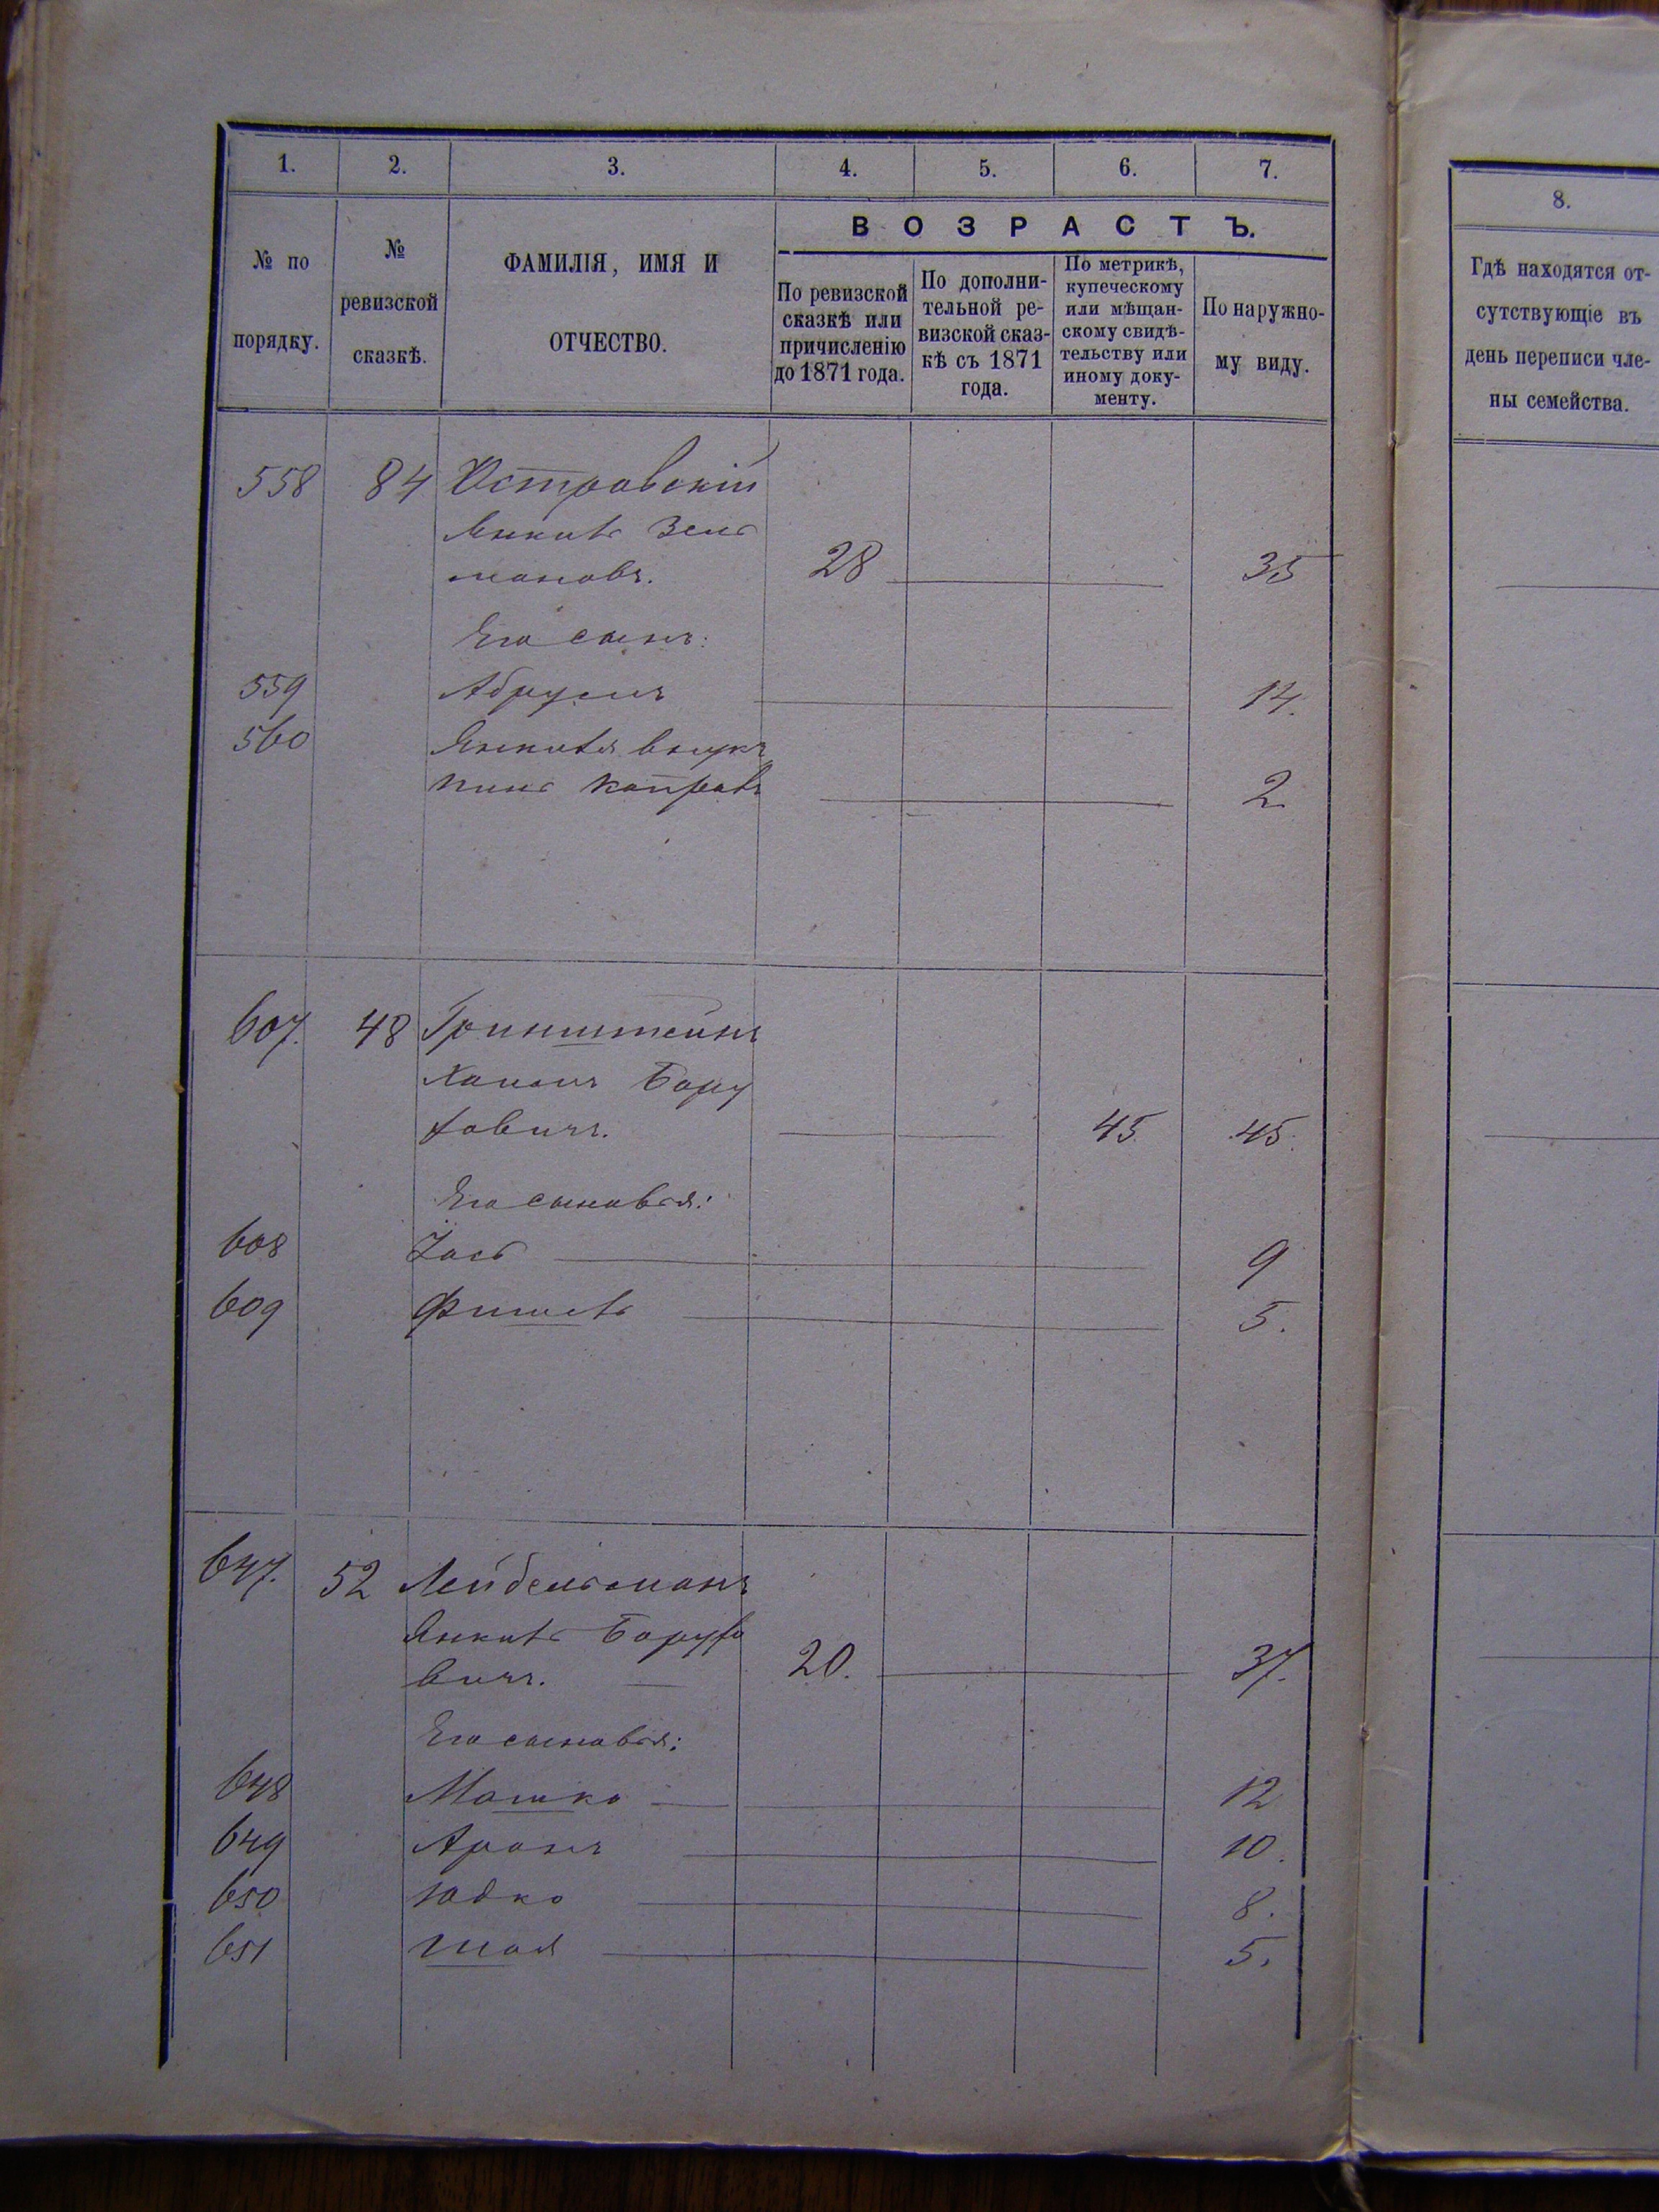 1. 2. 3. 4. 5. 6. 7.
№ по порядку.
№ ревизской сказкѣ.
ФАМИЛІЯ, ИМЯ И
ОТЧЕСТВО.
ВОЗРАСТЪ.
По ревизской
сказкѣ или
причисленію
до 1871 года.
По дополни-
тельной ре-
визской сказ-
кѣ съ 1871
года.
По метрикѣ,
купеческому
или мѣщан-
скому свидѣ-
тельству или
иному доку-
менту.
По наружно-
му виду.
558 84 Островскій
Янкель Зель
мановъ. 28 35
Его сынъ:
559 14.
560 Янкеля внукъ
2
607. 48 Гринштейнъ
Бору
ховичъ. 45 45.
Его сыновья:
608 9
609 Фишель 5.
647. 52 Лейбельманъ
Янкель Борухо
вичъ. 20. 37.
Его сыновья:
648 Мошко 12
649 Аронъ 10.
650 Юдко 8.
651 Шая 5.
8.
Гдѣ находятся от-
сутствующіе въ
день переписи чле-
ны семейства.